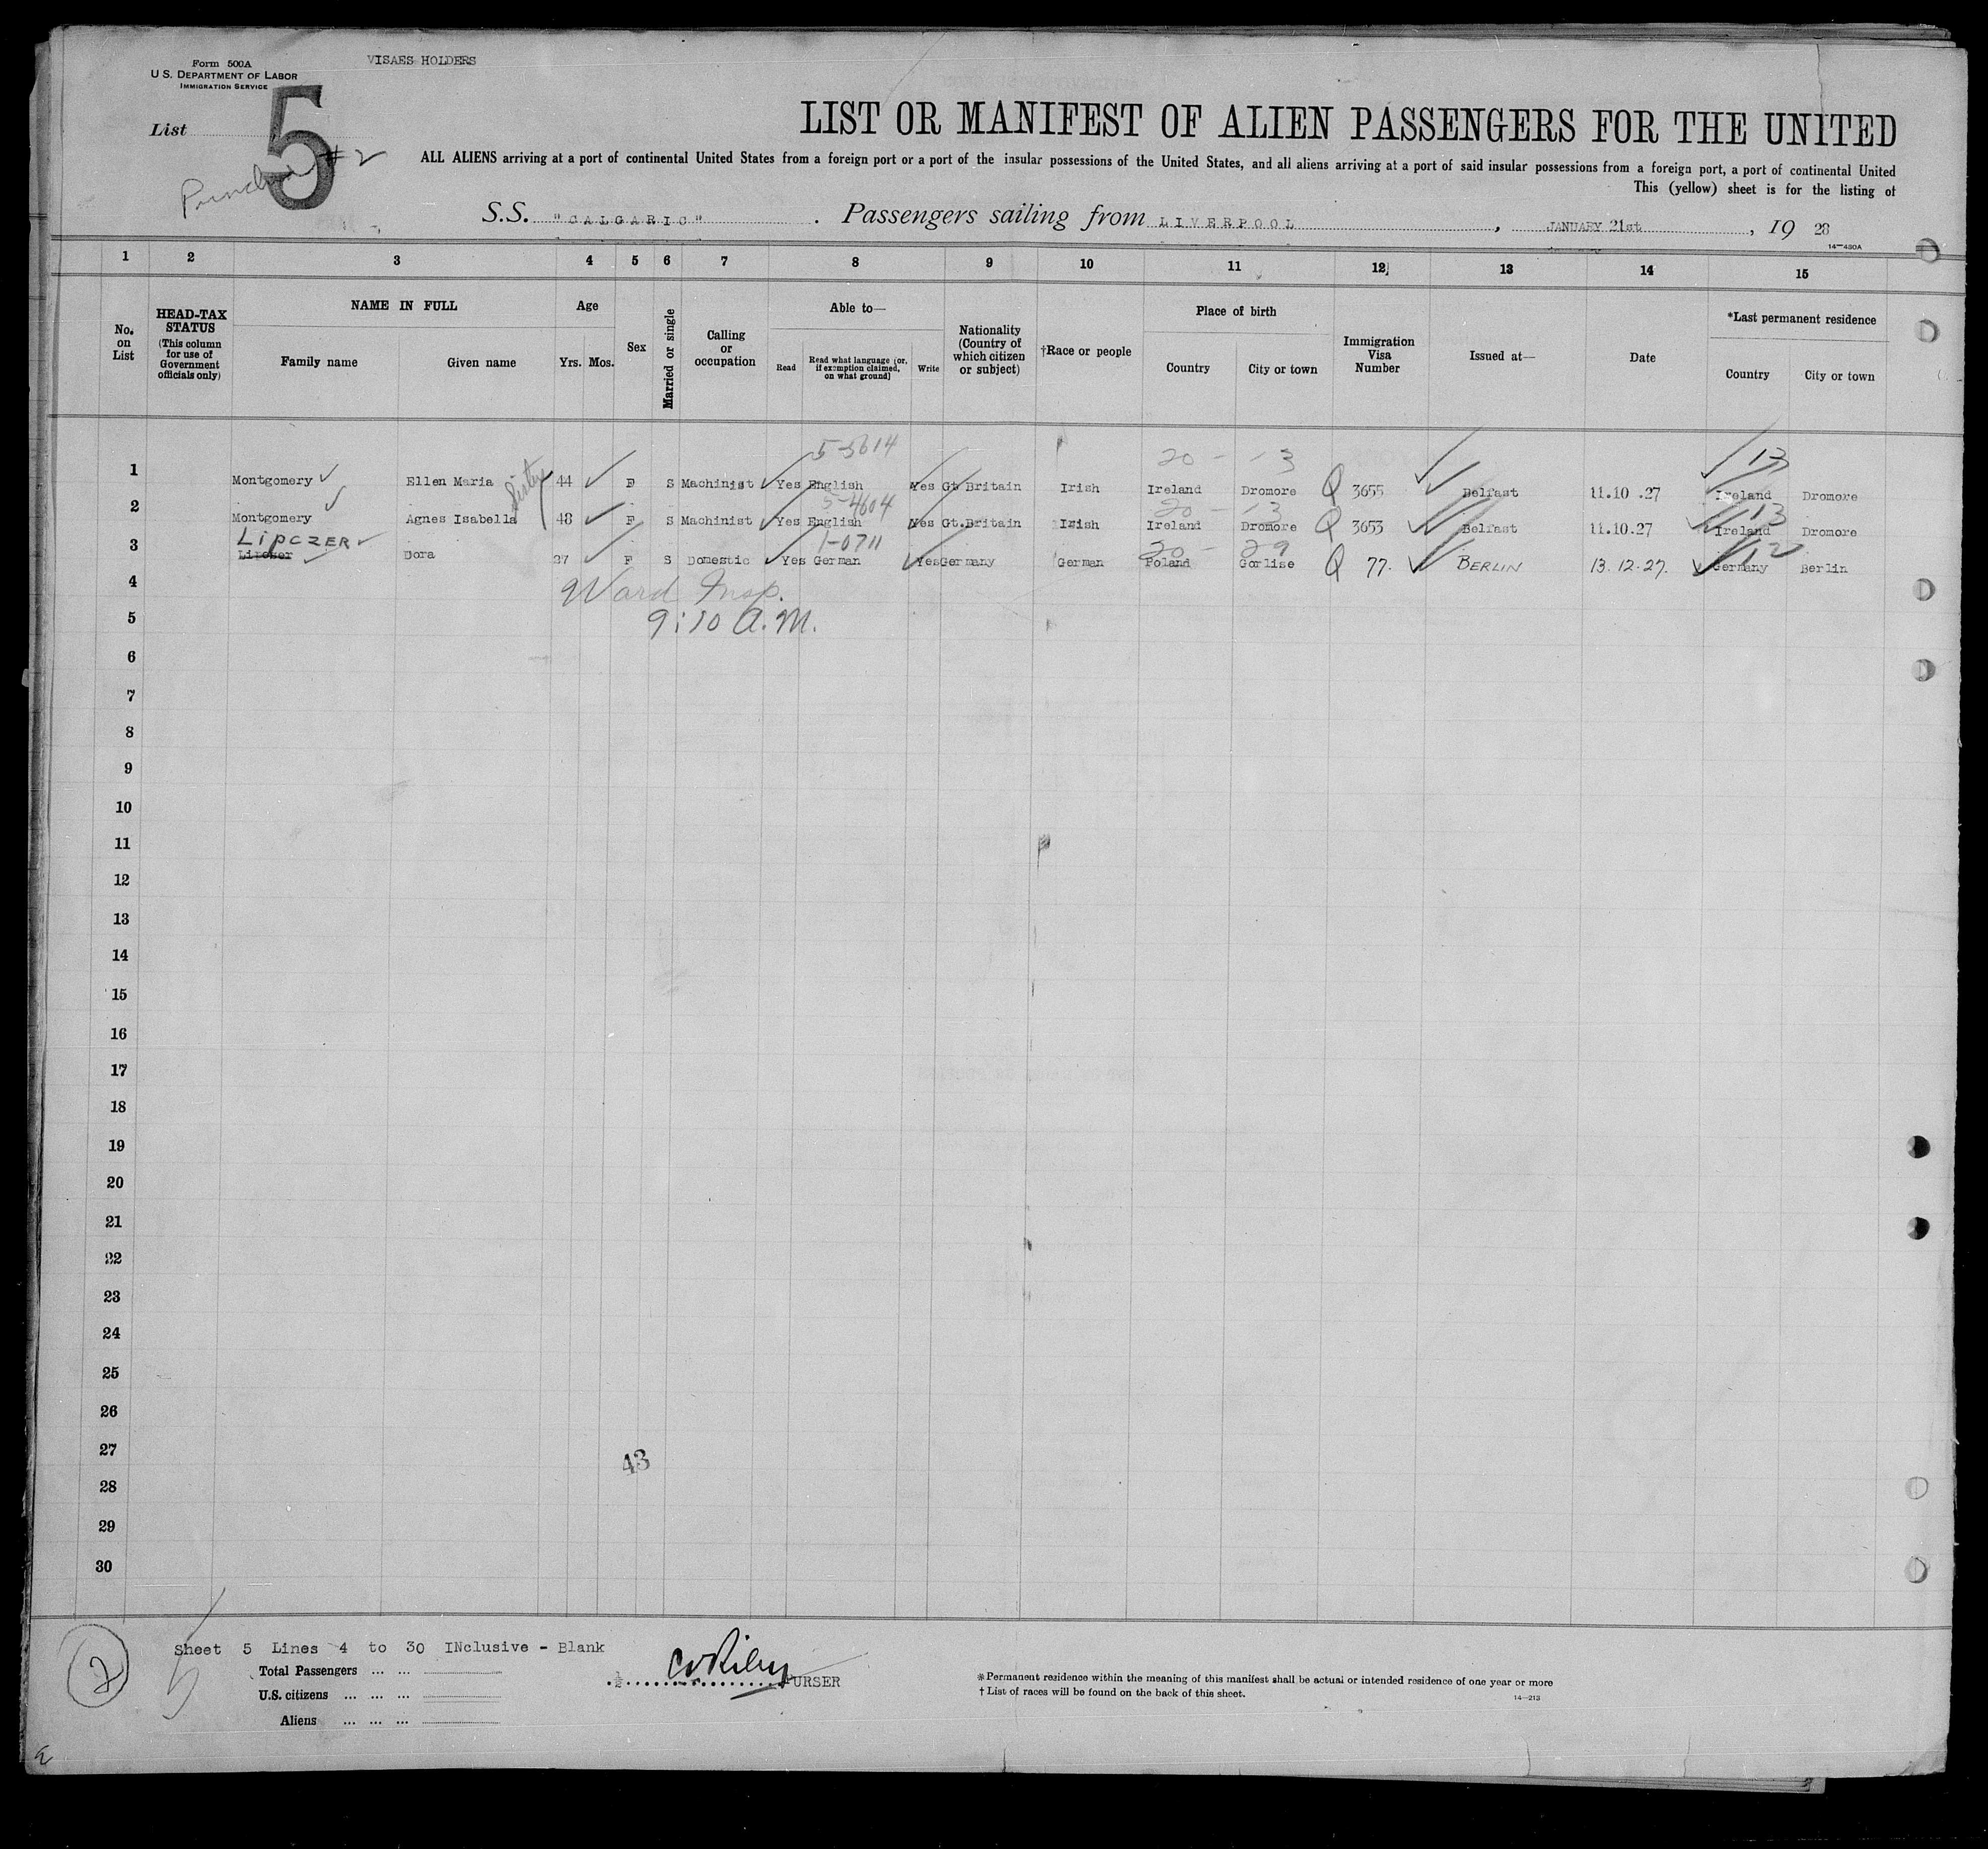 Form 500A
U.S. DEPARTMENT OF LABOR
IMMIGRATION SERVICE
VISAES HOLDERS
List
5
#2
LIST OR MANIFEST OF ALIEN PASSENGERS FOR THE UNITED
ALL ALIENS arriving at a port of continental United States from a foreign port or a port of the insular possessions of the United States, and all aliens arriving at a port of said insular possessions from a foreign port, a port of continental United
This (yellow) sheet is for the listing of
S.S. "CALGARIC". Passengers sailing from LIVERPOOL, JANUARY 21st, 19 28
14-480A
1 2 3 4 5 6 7 8 9 10 11 12 13 14 15
No. on List
HEAD-TAX STATUS (This column for use of Government officials only)
NAME IN FULL
Family name Given name
Age
Yrs. Mos.
Sex
Married or single
Calling or occupation
Able to—
Read Read what language (or, if exemption claimed, on what ground) Write
Nationality (Country of which citizen or subject)
†Race or people
Place of birth
Country City or town
Immigration Visa Number
Issued at—
Date
*Last permanent residence
Country City or town
5-3614 20 - 13 13
1 Montgomery Ellen Maria Sisters 44 F S Machinist Yes English Yes Gt Britain Irish Ireland Dromore Q 3655 Belfast 11.10.27 Ireland Dromore
5-4604 20 - 13 13
2 Montgomery Agnes Isabella 48 F S Machinist Yes English Yes Gt.Britain Irish Ireland Dromore Q 3653 Belfast 11.10.27 Ireland Dromore
LIPCZER 1-0711 20 - 29 12
3 Dora 27 F S Domestic Yes German Yes Germany German Poland Gorlise Q 77. BERLIN 13.12.27. Germany Berlin
4 Ward Insp.
5 9:10 A.M.
6
7
8
9
10
11
12
13
14
15
16
17
18
19
20
21
22
23
24
25
26
27 43
28
29
30
2
Sheet 5 Lines 4 to 30 INclusive - Blank
Total Passengers ... ...
U.S. citizens ... ... ...
Aliens ... ... ...
CWRiley PURSER
*Permanent residence within the meaning of this manifest shall be actual or intended residence of one year or more
† List of races will be found on the back of this sheet.
14-213